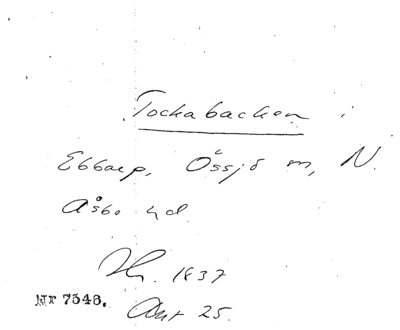 Tockabacken i
Ebbarp, Össjö sn, N.
Åsbo hd.
Hr. 1837
Nr 7548.
Ant 25.